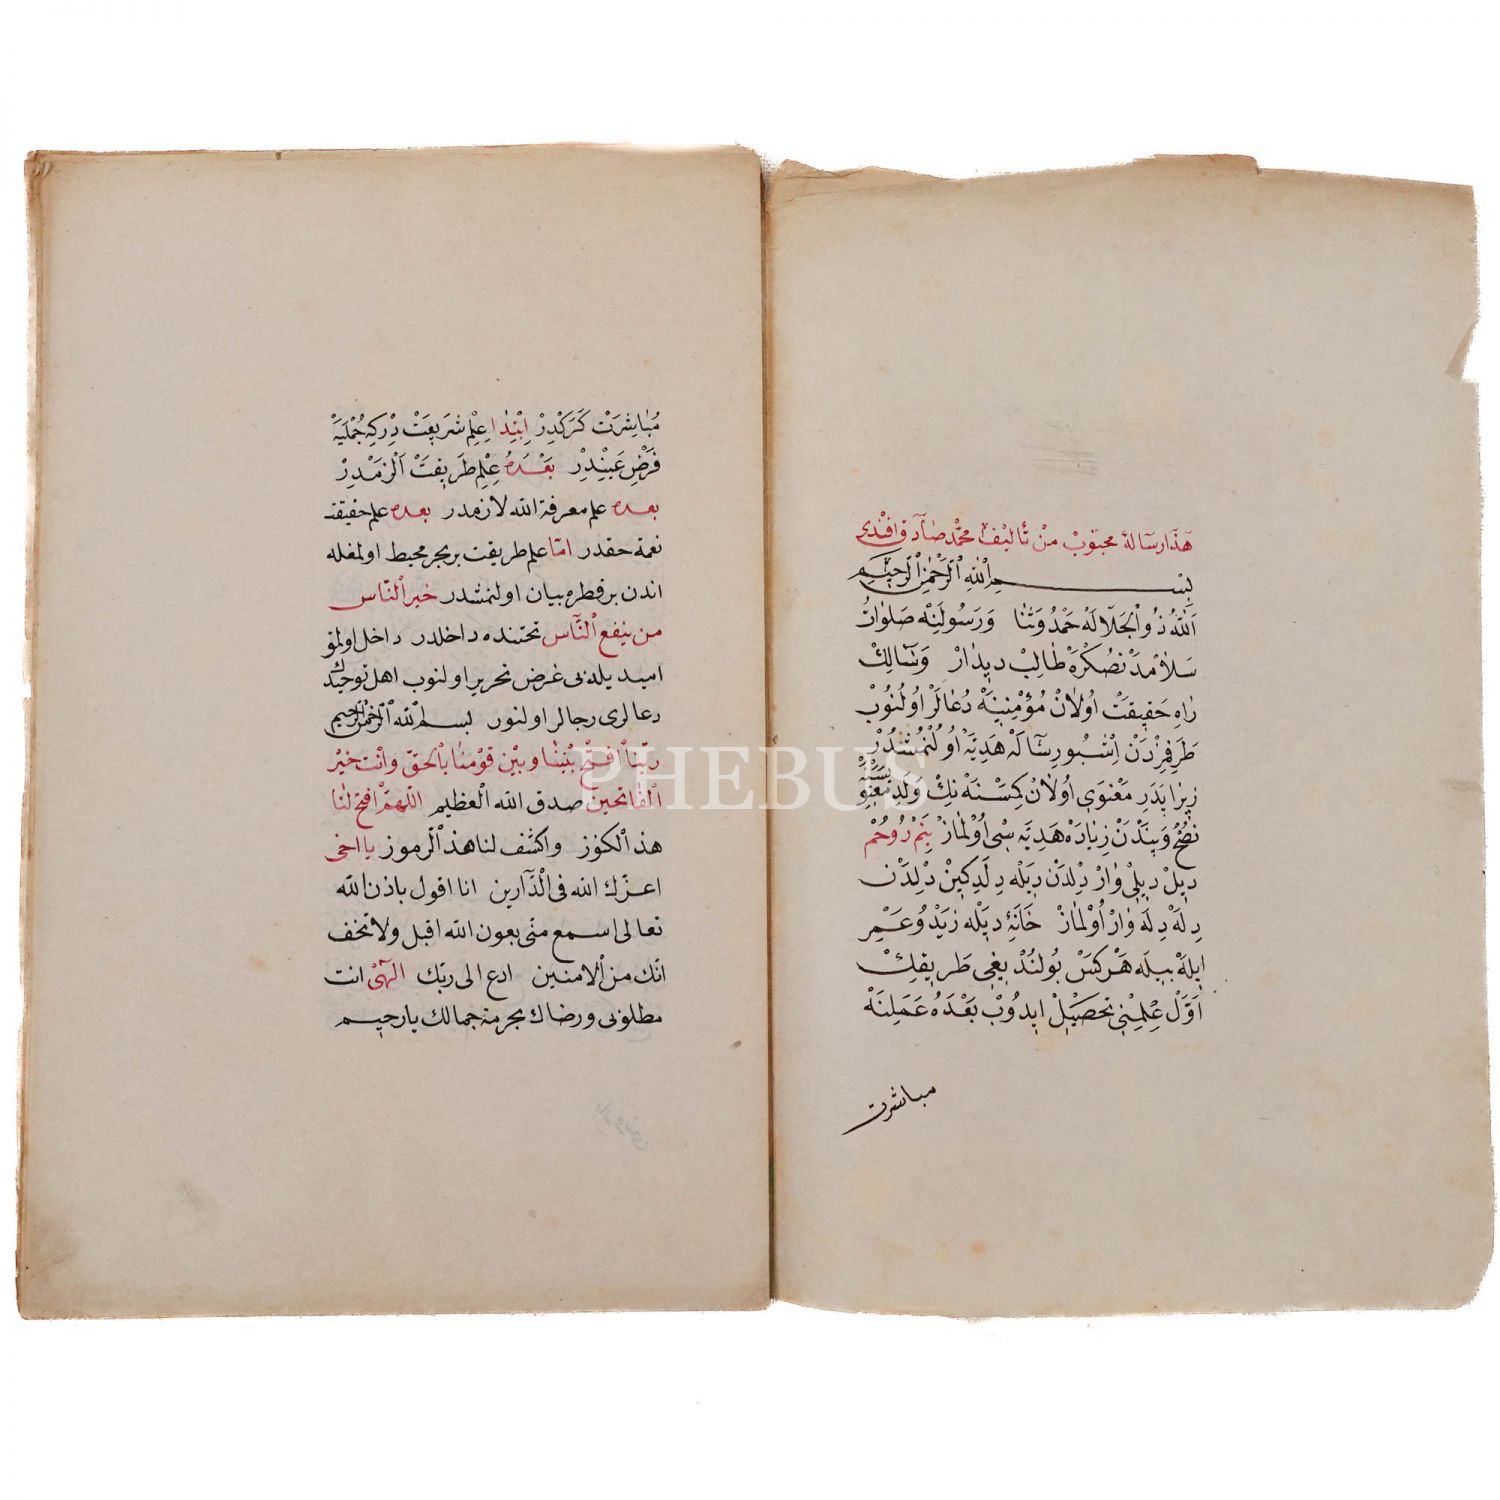 هَذَا رِسَالَهٔ مَحْبُوبْ مِنْ تَأْلِيفْ مُحَمَّدْ صَادِقْ اَفَنْدِي
بِسْمِ اللهِ الرَّحْمٰنِ الرَّحِيمِ
اَللهُ ذُو الْجَلَالَهْ حَمْدُ وَثَنَا وَرَسُولِنَهْ صَلَوَاتُ
سَلَامْدَنْ صُكْرَهْ طَالِبْ دِيدَارْ وَسَالِكْ
رَاهِ حَقِيقَتْ اُولَانْ مُؤْمِنِينَهْ دُعَالَرْ اُولُنُوبْ
طَرَفِمِزْدَنْ اِشْبُو رِسَالَهْ هَدِيَّهْ اُولُنْمُشْدُرْ
زِيرَا پَدَرِ مَعْنَوِي اُولَانْ كِسْنَهْ نِكْ وَلَدِ مَعْنَوِيسِنَهْ
نُصْحُ وَپَنْدْدَنْ زِيَادَهْ هَدِيَّهْ سِي اُولْمَازْ بَنِمْ رُوحُمْ
دِيلْ دِيلِي وَارْ دِلْدَنْ دِيلَهْ دِلَدِكِينْ دِلْدَنْ
دِلَهْ دِلَهْ وَارْ اُولْمَازْ خَانَهٔ دِيلَهْ زَيْدُ وعَمْرِ
اِيلَهْ بِيلَهْ هَرْكَسْ بُولُنْدِيغِي طَرِيقِكْ
اَوَّلْ عِلْمِنِي تَحْصِيلْ اِيدُوبْ بَعْدَهُ عَمَلِنَهْ
مباشرت
مُبَاشَرَتْ كَرَكْدِرْ اِبْتِدَا عِلْمِ شَرِيعَتْ دِرْكِهْ جُمْلَيَهْ
فَرْضِ عَيْنْدِرْ بَعْدَهُ عِلْمِ طَرِيقَتْ اَلْزَمْدِرْ
بعده علم معرفة الله لازمدر بعده علم حقيقت
نعمة حقدر امّا علم طريقت بر بحر محيط اولمغله
اندن بر قطره بيان اولنمشدر خير النّاس
من ينفع النّاس تحتنده داخلدر داخل اولمق
اميد يله بى غرض تحرير اولنوب اهل توحيدك
دعالرى رجالر اولنور بسم الله الرّحمن الرّحيم
ربّنا افتح بيننا وبين قومنا بالحقّ وانت خير
الفاتحين صدق الله العظيم اللهمّ افتح لنا
هذ الكنوز واكشف لنا هذ الرموز يا اخى
اعزّك الله فى الدّارين انا اقول باذن الله
تعالى اسمع منّى بعون الله اقبل ولا تخف
انّك من الامنين ادع الى ربّك الهى انت
مطلوبى ورضاك بحرمة جمالك يا رحيم
PHEBUS